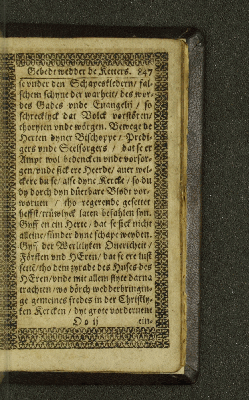 Gebede wedder de Ketters. 847
se vnder den Schapeskledern / fal-
schem schyne der warheit / des wor-
des Gades vnde Euangelij / so
schrecklyck dat Volck vorstören /
thoryten vnde wörgen. Bewege de
Herten dyner Bischoppe / Predi-
gers vnde Seelsorgers / dat se er
Ampt wol bedencken vnde vorsor-
gen / vnde sick ere Heerde / auer wel-
ckere du se / alse dyne Kercke / so du
dy dorch dyn düerbare Blodt vor-
woruen / tho regerende gesettet
heffst / trüwlyck laten befahlen syn.
Gyff en ein Herte / dat se sick nicht
alleine / sünder dyne schape weyden.
Gyff der Werltlyken Ouericheit /
Försten vnd HEren / dat se ere lust
sette / tho dem zyrade des Huses des
HEren / vnde mit allem flyte darna
trachten / wo dörch wedderbringin-
ge gemeines fredes in der Christly-
ken Kercken / dyt grote vorderuene
Oo ij ein-